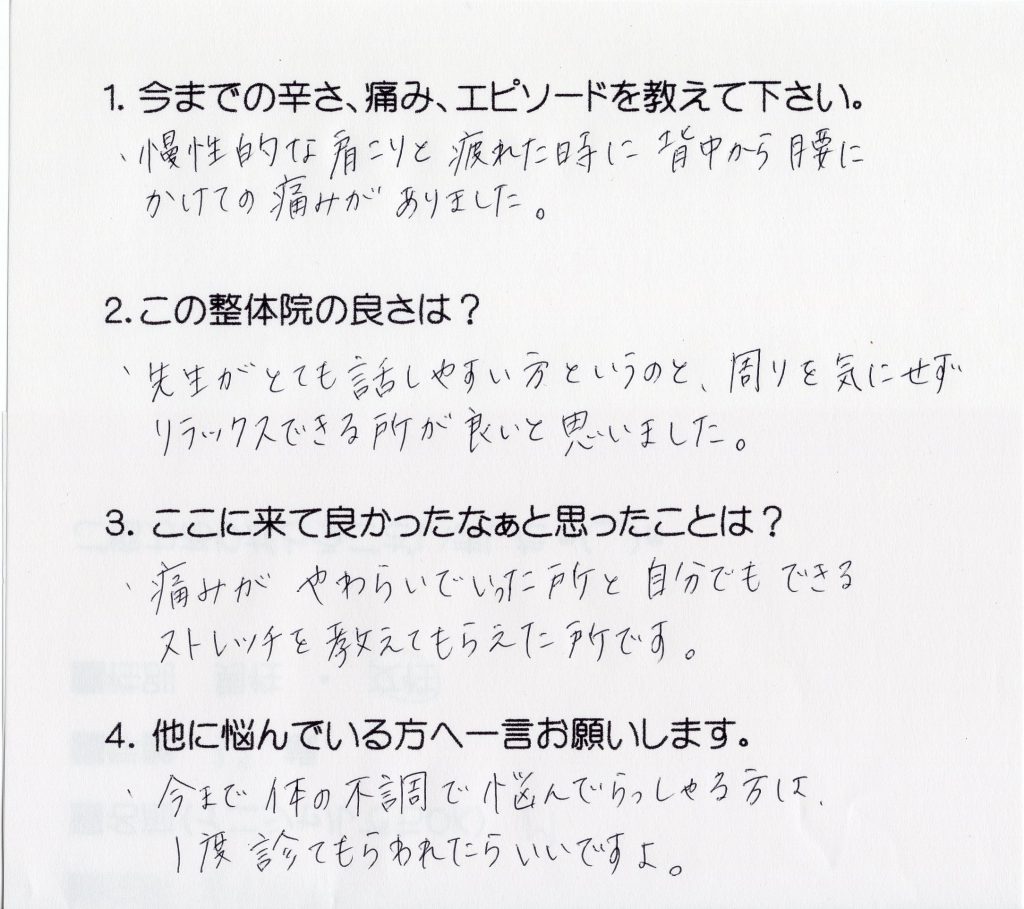 1. 今までの辛さ、痛み、エピソードを教えて下さい。
、慢性的な肩こりと疲れた時に背中から腰に
かけての痛みがありました。
2. この整体院の良さは？
、先生がとても話しやすい方というのと、周りを気にせず
リラックスできる所が良いと思いました。
3. ここに来て良かったなぁと思ったことは？
、痛みがやわらいでいった所と自分でもできる
ストレッチを教えてもらえた所です。
4. 他に悩んでいる方へ一言お願いします。
、今まで体の不調で悩んでらっしゃる方は、
1度診てもらわれたらいいですよ。